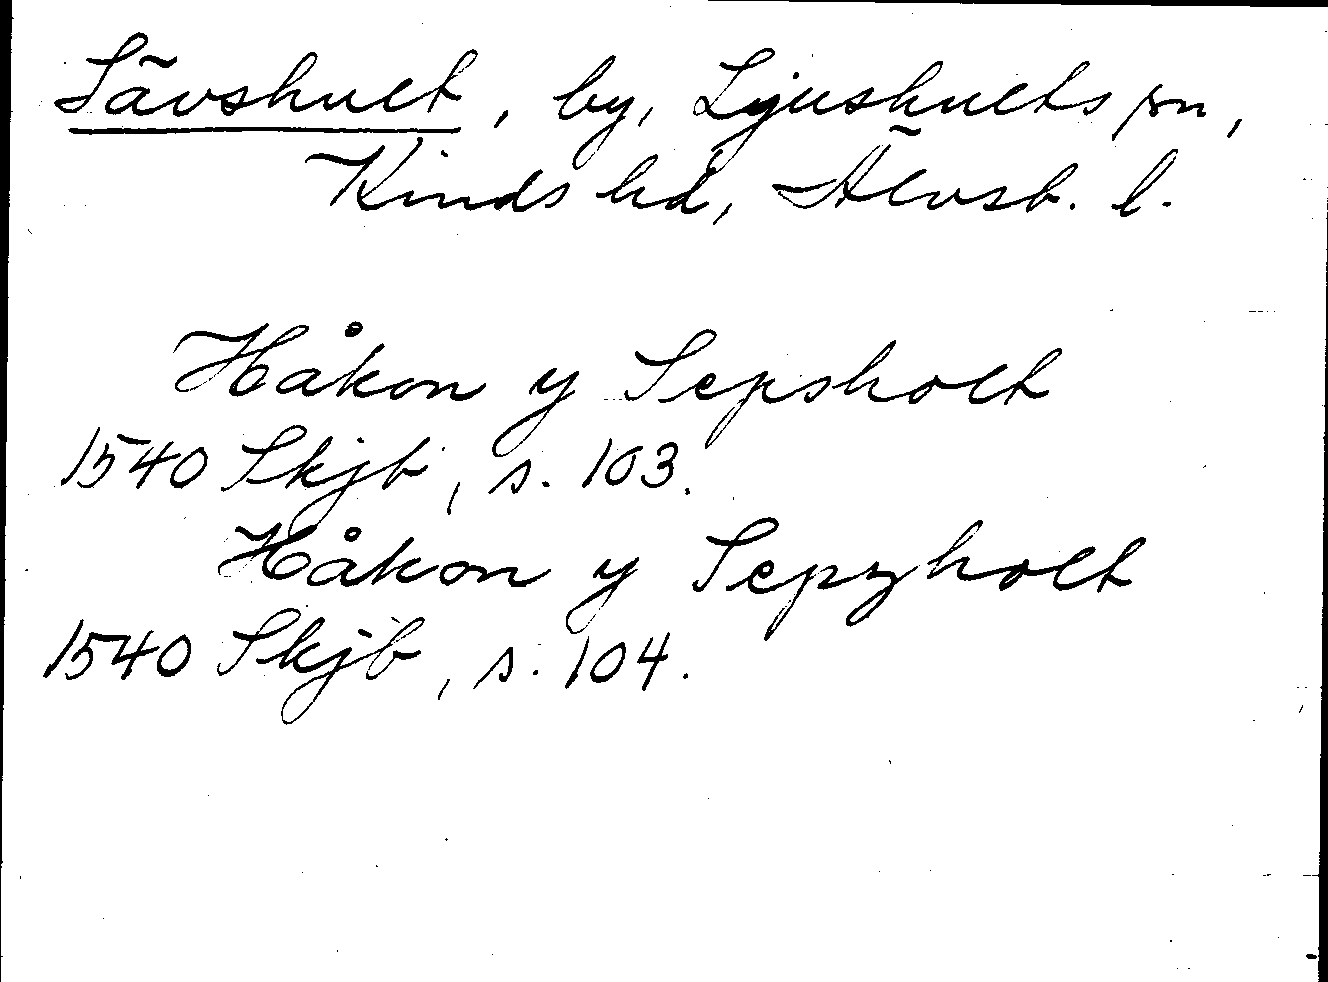 Sävshult, by, Ljushults sn,
Kinds hd, Älvsb. l.
Håkon y Sepsholt
1540 Skjb, s. 103.
Håkon y Sepzholt
1540 Skjb, s. 104.